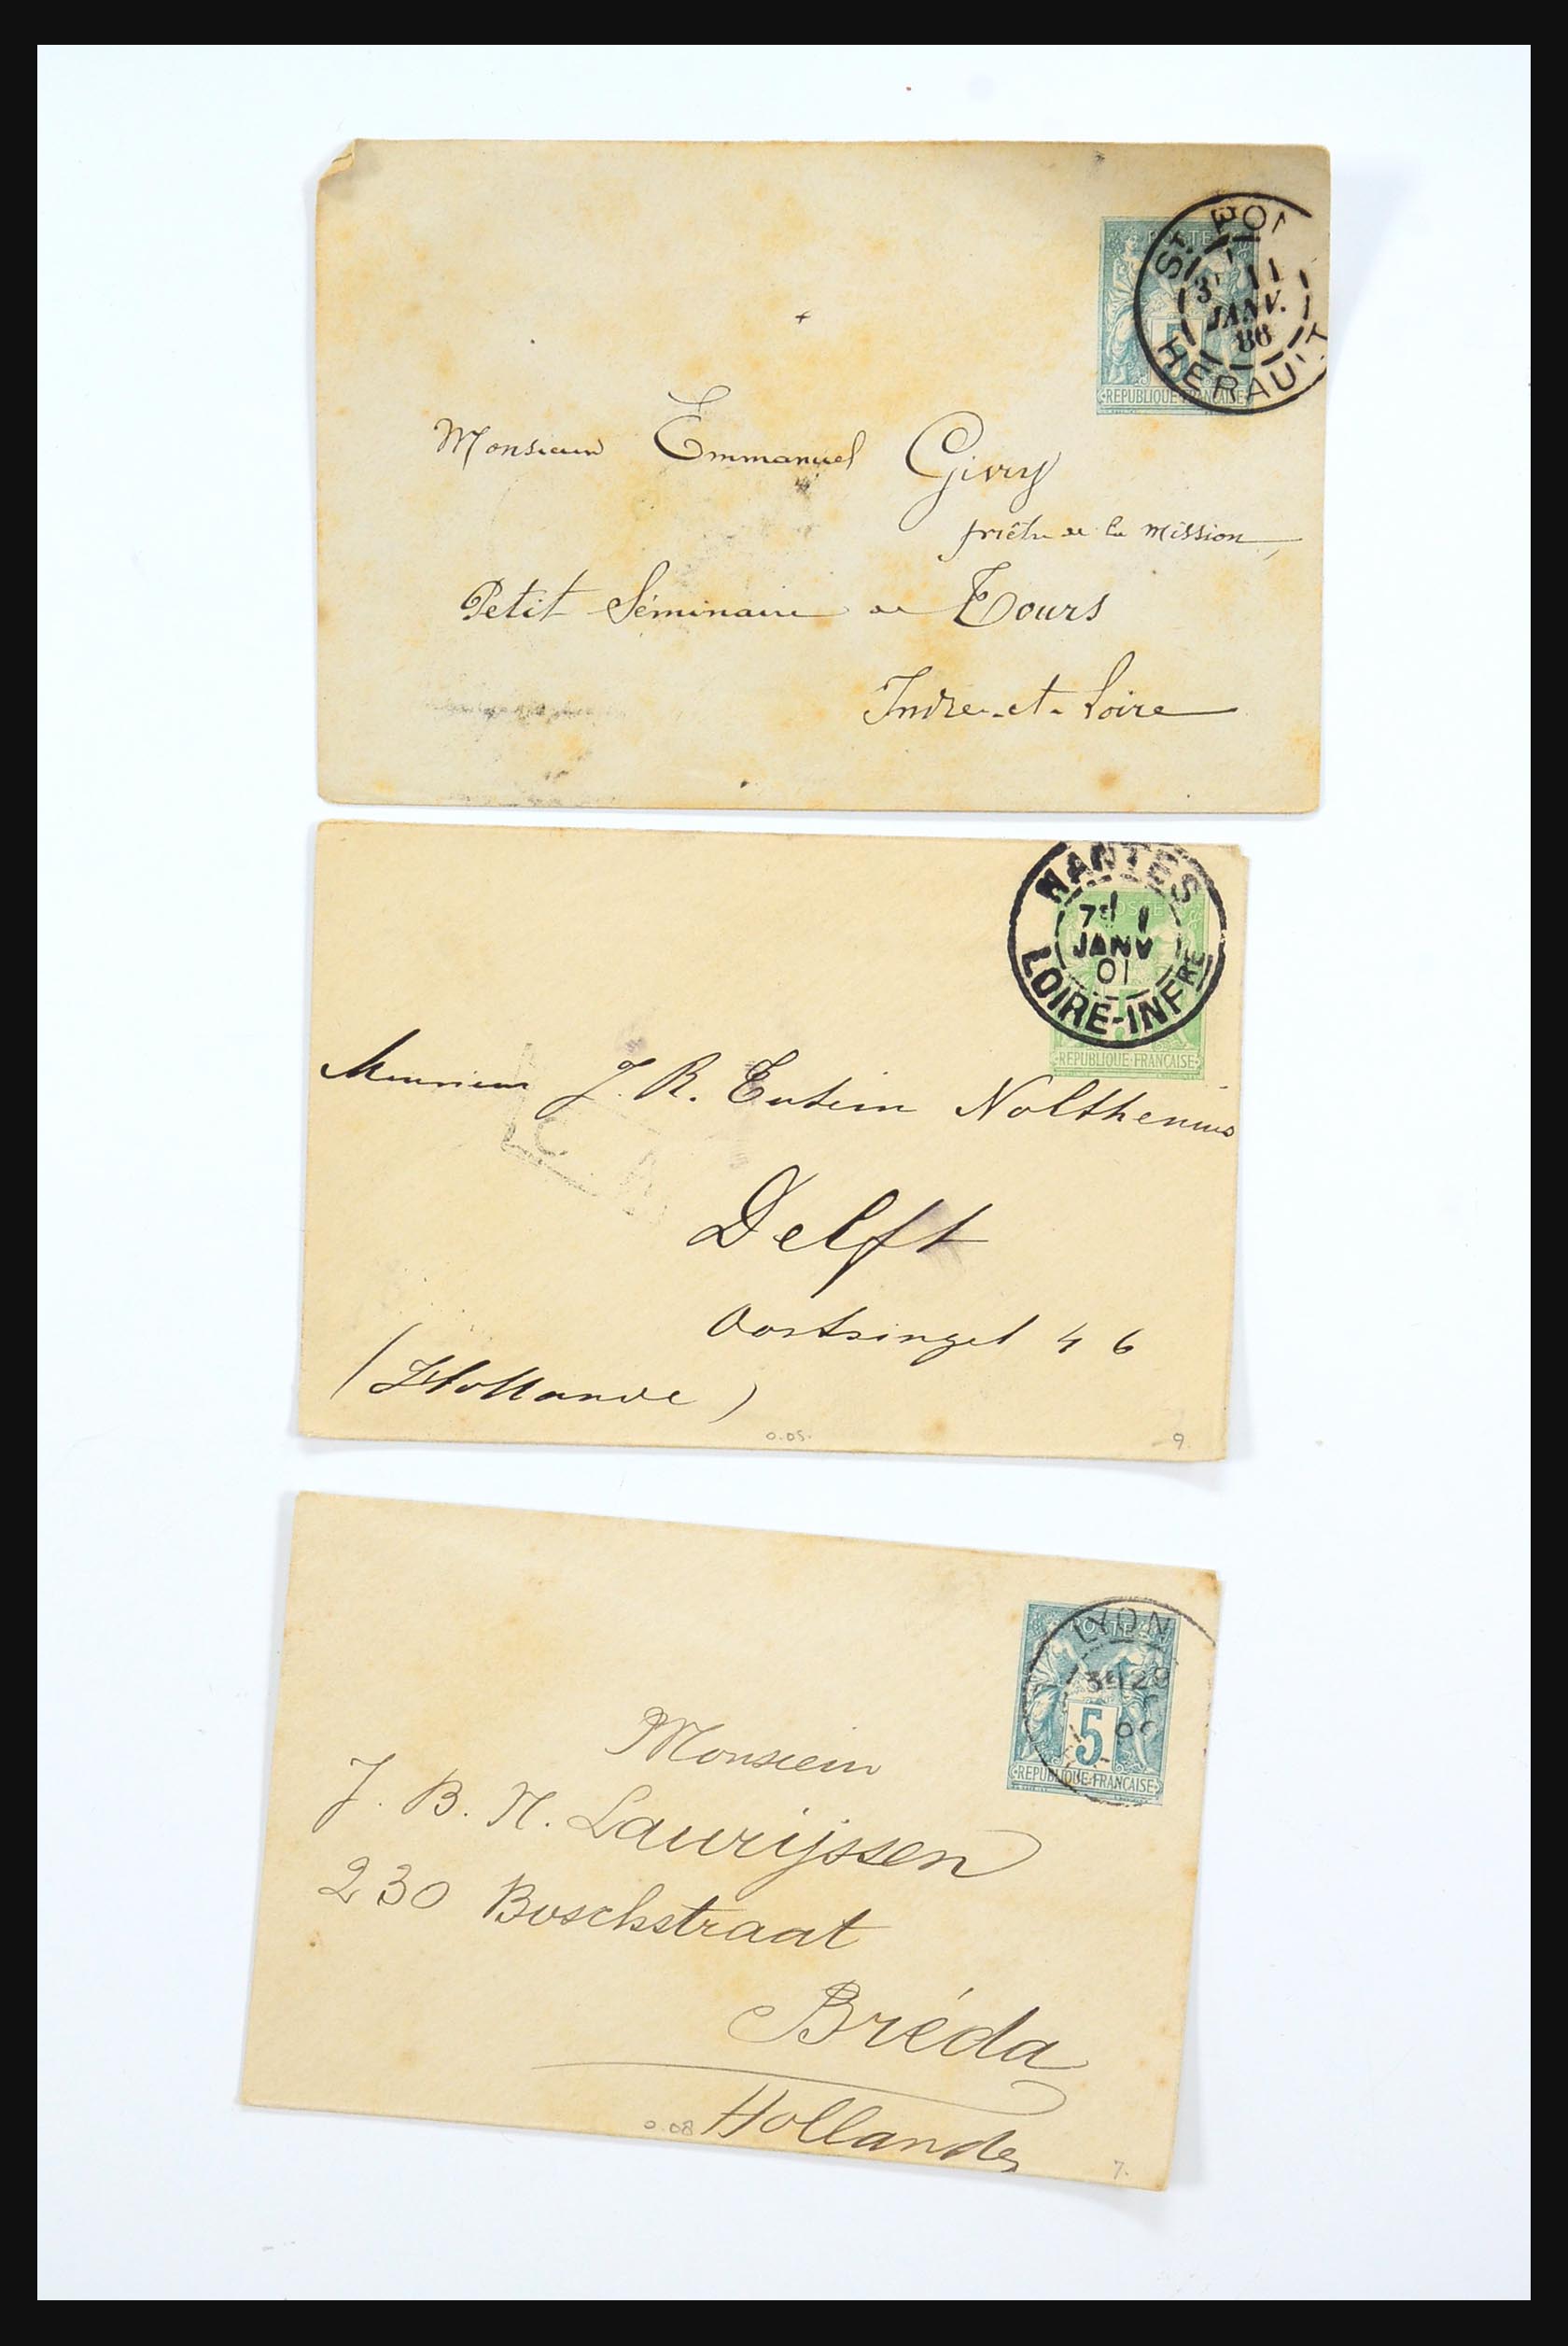 POSTE
ST PO
3E 11
JANV.
88
HERAULT
5
REPUBLIQUE FRANCAISE
Monsieur Emmanuel Givry
prêtre de la Mission,
Petit Séminaire de Tours
Indre-et-Loire
NANTES
7E 1
JANV
01
LOIRE-INFRE
POSTE
REPUBLIQUE FRANÇAISE
Monsieur J. R. Eutein Nolthenius
Delft
Oostsingel 46
(Hollande)
0.05.
9
LYON
POSTE
3E 29
5
REPUBLIQUE FRANÇAISE
Monsieur
J. B. N. Laurijssen
230 Boschstraat
Bréda
Hollande
0.08
7.